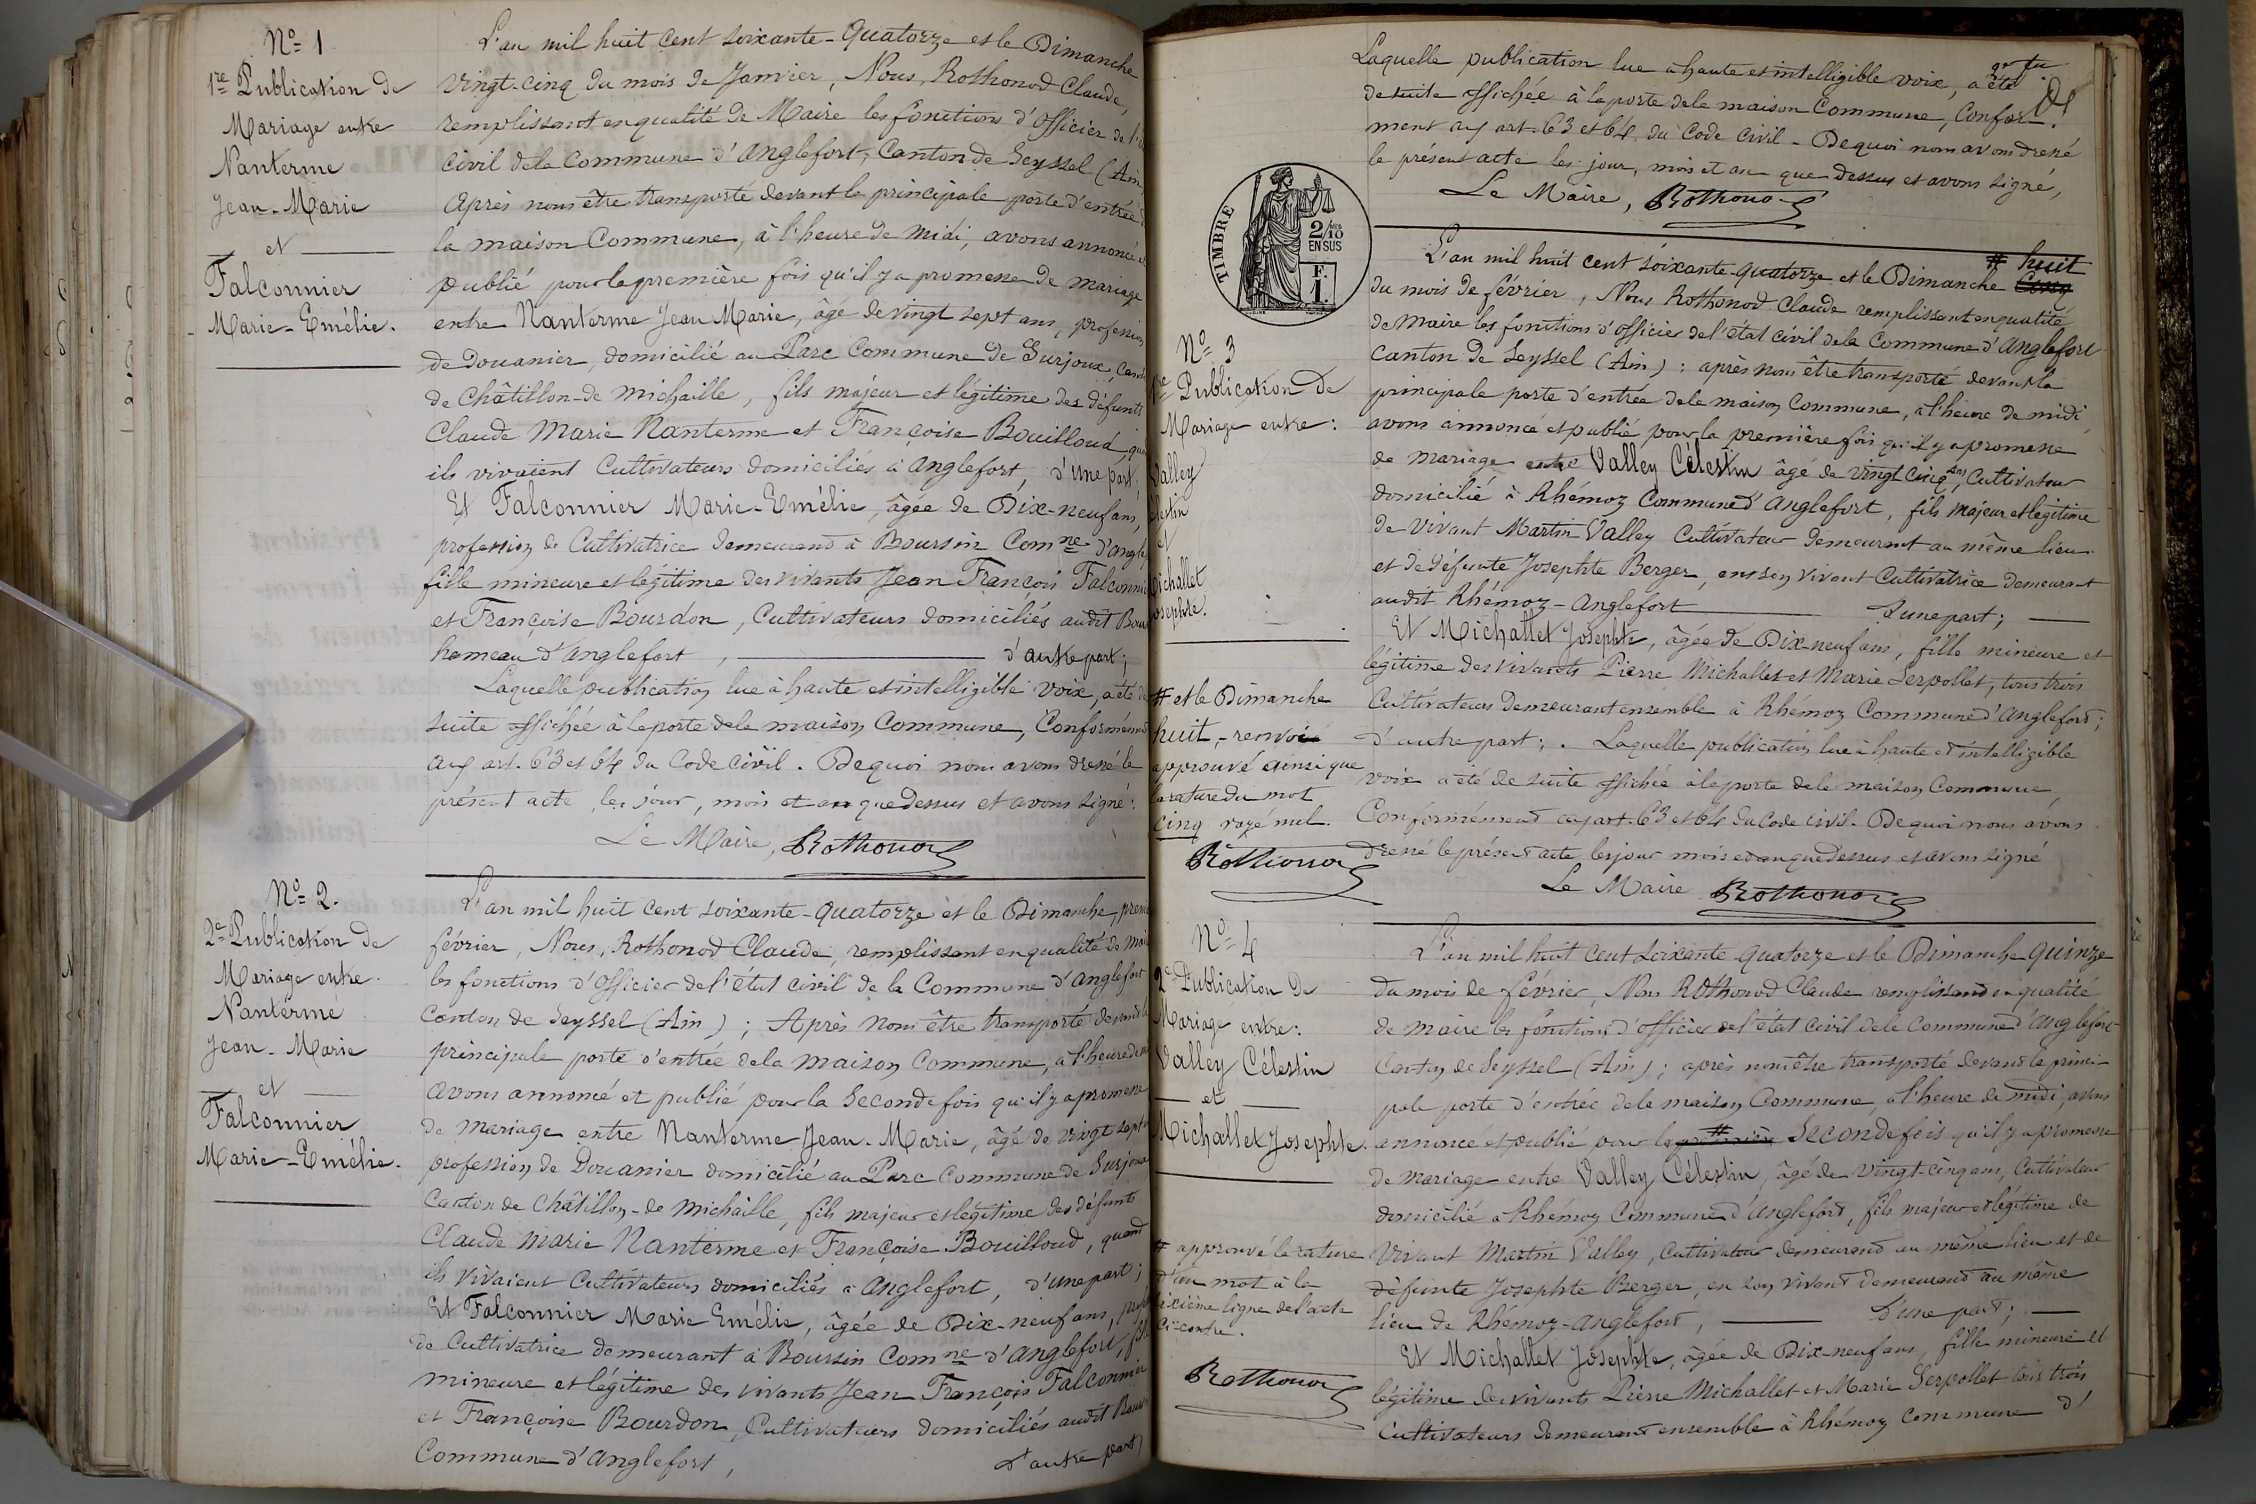 Nº 1
1re Publication de
Mariage entre
Nanterme
Jean-Marie
et
Falconnier
Marie-Emélie.
L'an mil huit cent soixante-quatorze et le Dimanche
vingt-cinq du mois de Janvier, Nous, Rothonod Claude,
remplissant en qualité de Maire les fonctions d'officier de
civil de la Commune d'Anglefort, Canton de Seyssel (Ain
Après nous être transporté devant la principale porte d'entrée
la maison Commune, à l'heure de midi, avons annoncé
publié pour la première fois qu'il y a promesse de mariage
entre Nanterme Jean Marie, âgé de vingt sept ans, profession
de Douanier, domicilié au Parc Commune de Surjoux,
de Châtillon-de Michaille, fils majeur et légitime des défunts
Claude Marie Nanterme et Françoise Bouilloud,
ils vivaient Cultivateurs domiciliés à Anglefort, d'une part;
Et Falconnier Marie-Emélie, âgée de Dix-neuf ans,
profession de Cultivatrice demeurand à Boursin Comne d'Angle
fille mineure et légitime des vivants Jean François Falconni
et Françoise Bourdon, Cultivateurs domiciliés audit Bour
hameau d'Anglefort, d'autre part;
Laquelle publication lue à haute et intelligible voix, a été de
suite affichée à la porte de la maison Commune, Conformément
aux art. 63 et 64 du Code Civil. De quoi nous avons dressé le
présent acte les jour, mois et an que dessus et avons signé:
Le Maire, Rothonod
Nº 2.
2e Publication de
Mariage entre
Nanterme
Jean-Marie
et
Falconnier
Marie-Emélie.
L'an mil huit cent soixante-quatorze et le Dimanche, premi
février, Nous, Rothonod Claude, remplissant en qualité de Mai
les fonctions d'officier de l'état civil de la Commune d'Anglefort
Canton de Seyssel (Ain); Après nous être transporté devant la
principale porte d'entrée de la maison Commune, à l'heure de
avons annoncé et publié pour la seconde fois qu'il y a promesse
de mariage entre Nanterme Jean-Marie, âgé de vingt sept
profession de Douanier domicilié au Parc Commune de Surjoux
Canton de Châtillon-de Michaille, fils majeur et légitime des défunts
Claude Marie Nanterme et Françoise Bouilloud, quand
ils vivaient Cultivateurs domiciliés à Anglefort, d'une part;
Et Falconnier Marie Emélie, âgée de Dix-neuf ans,
de Cultivatrice demeurant à Boursin Comne d'Anglefort,
mineure et légitime des vivants Jean François Falconnier
et Françoise Bourdon, Cultivateurs domiciliés audit Bour
Commune d'Anglefort, d'autre part
Laquelle publication lue à haute et intelligible voix, a été
de suite affichée à la porte de la maison Commune, Confor
ment aux art. 63 et 64 du Code Civil - De quoi nous avons dressé
le présent acte les jour, mois et an que dessus et avons signé,
Le Maire, Rothonod
TIMBRE
2/10
EN SUS
F.
1.
Nº 3
1re Publication de
Mariage entre:
Valley
lestin
et
Michallet
osephte.
# et le Dimanche
huit, - renvoi
approuvé ainsi que
la rature du mot
Cinq rayé nul.
Rothonod
# huit
L'an mil huit cent soixante-quatorze et le Dimanche Cinq
du mois de février, Nous Rothonod Claude remplissant en qualité
de Maire les fonctions d'officier de l'état civil de la Commune d'Anglefort
Canton de Seyssel (Ain): après nous être transporté devant la
principale porte d'entrée de la maison Commune, à l'heure de midi,
avons annoncé et publié pour la première fois qu'il y a promesse
de mariage entre Valley Célestin âgé de vingt cinq ans, Cultivateur
domicilié à Rhémoz Commune d'Anglefort, fils majeur et légitime
de vivant Martin Valley Cultivateur demeurant au même lieu
et de défunte Josephte Berger, en son vivant Cultivatrice demeurant
audit Rhémoz-Anglefort d'une part;
Et Michallet Josephte, âgée de Dix-neuf ans, fille mineure et
légitime des vivants Pierre Michallet et Marie Serpollet, tous trois
Cultivateurs demeurant ensemble à Rhémoz Commune d'Anglefort;
d'autre part;. Laquelle publication lue à haute et intelligible
voix a été de suite affichée à la porte de la maison Commune,
Conformément aux art. 63 et 64 du Code Civil. De quoi nous avons
dressé le présent acte les jour mois et an que dessus et avons signé
Le Maire Rothonod
Nº 4
2e Publication de
Mariage entre:
Valley Célestin
et
Michallet Josephte.
# approuvé la rature
d'un mot à la
sixième ligne de l'acte
Ci-contre.
Rothonod
L'an mil huit cent soixante-quatorze et le Dimanche quinze
du mois de février, Nous Rothonod Claude remplissant en qualité
de maire les fonctions d'officier de l'état civil de la Commune d'Anglefort
Canton de Seyssel (Ain); après nous être transporté devant la princi-
pale porte d'entrée de la maison Commune, à l'heure de midi, avons
annoncé et publié pour la première # seconde fois qu'il y a promesse
de mariage entre Valley Célestin, âgé de vingt-cinq ans, Cultivateur
domicilié à Rhémoz Commune d'Anglefort, fils majeur et légitime de
vivant Martin Valley, Cultivateur demeurand au même lieu et de
défunte Josephte Berger, en son vivant demeurand au même
lieu de Rhémoz-Anglefort, d'une part;
Et Michallet Josephte, âgée de Dix-neuf ans, fille mineure et
légitime des vivants Pierre Michallet et Marie Serpollet tous trois
Cultivateurs demeurant ensemble à Rhémoz Commune d'